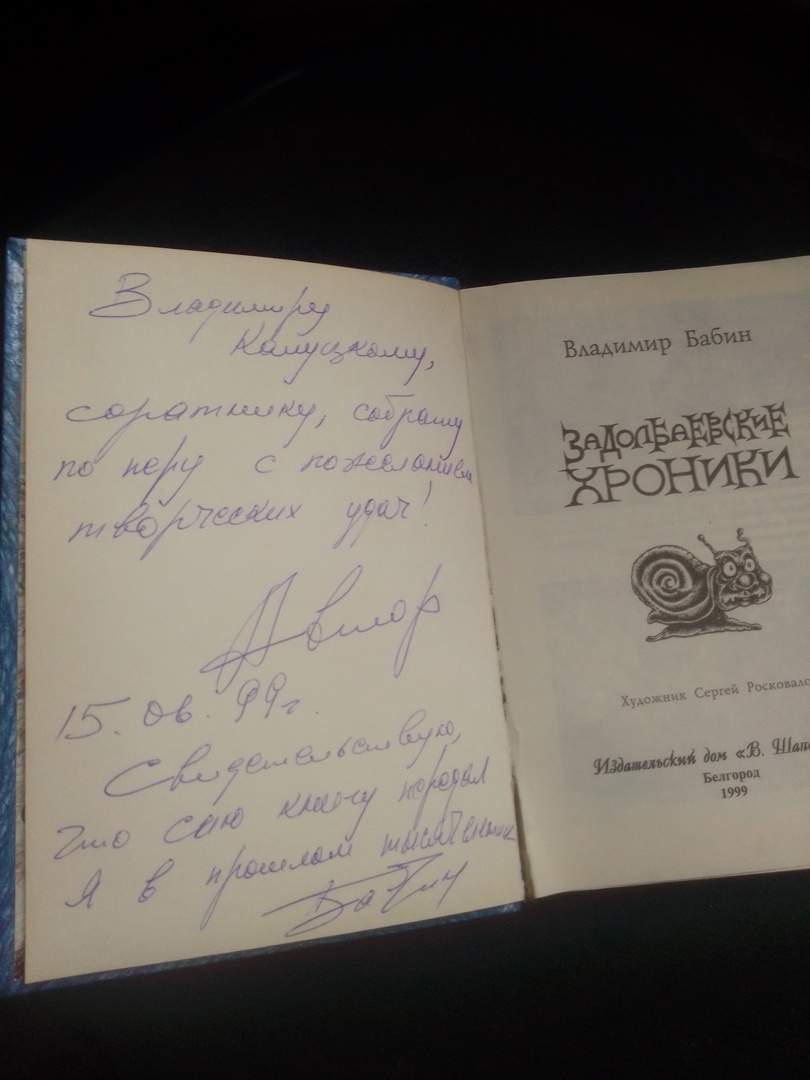 Владимиру
Калуцкому,
соратнику, собрату
по перу с пожеланием
творческих удач!
Автор
15. 06. 99г.
Свидетельствую,
что сию книгу передал
Я в прошлом тысячелетии
Бабин
Владимир Бабин
ЗАДОЛБАЕВСКИЕ
ХРОНИКИ
Художник Сергей Росковало
Издательский дом «В. Шап
Белгород
1999